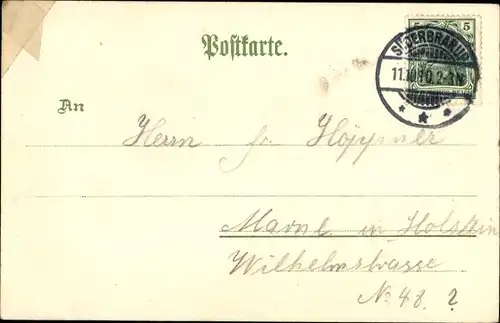 5 5
Postkarte.
SÜDERBRARUP
11.10.10.2-3N
An
Herrn Fr Höppner
Marne in Holstein
Wilhelmstrasse
No 48. 2